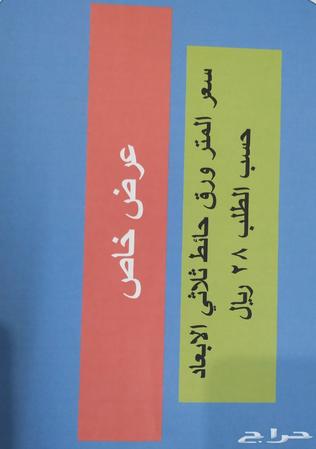 عرض خاص
سعر المتر ورق حائط ثلاثي الابعاد
حسب الطلب ٢٨ ريال
حراج